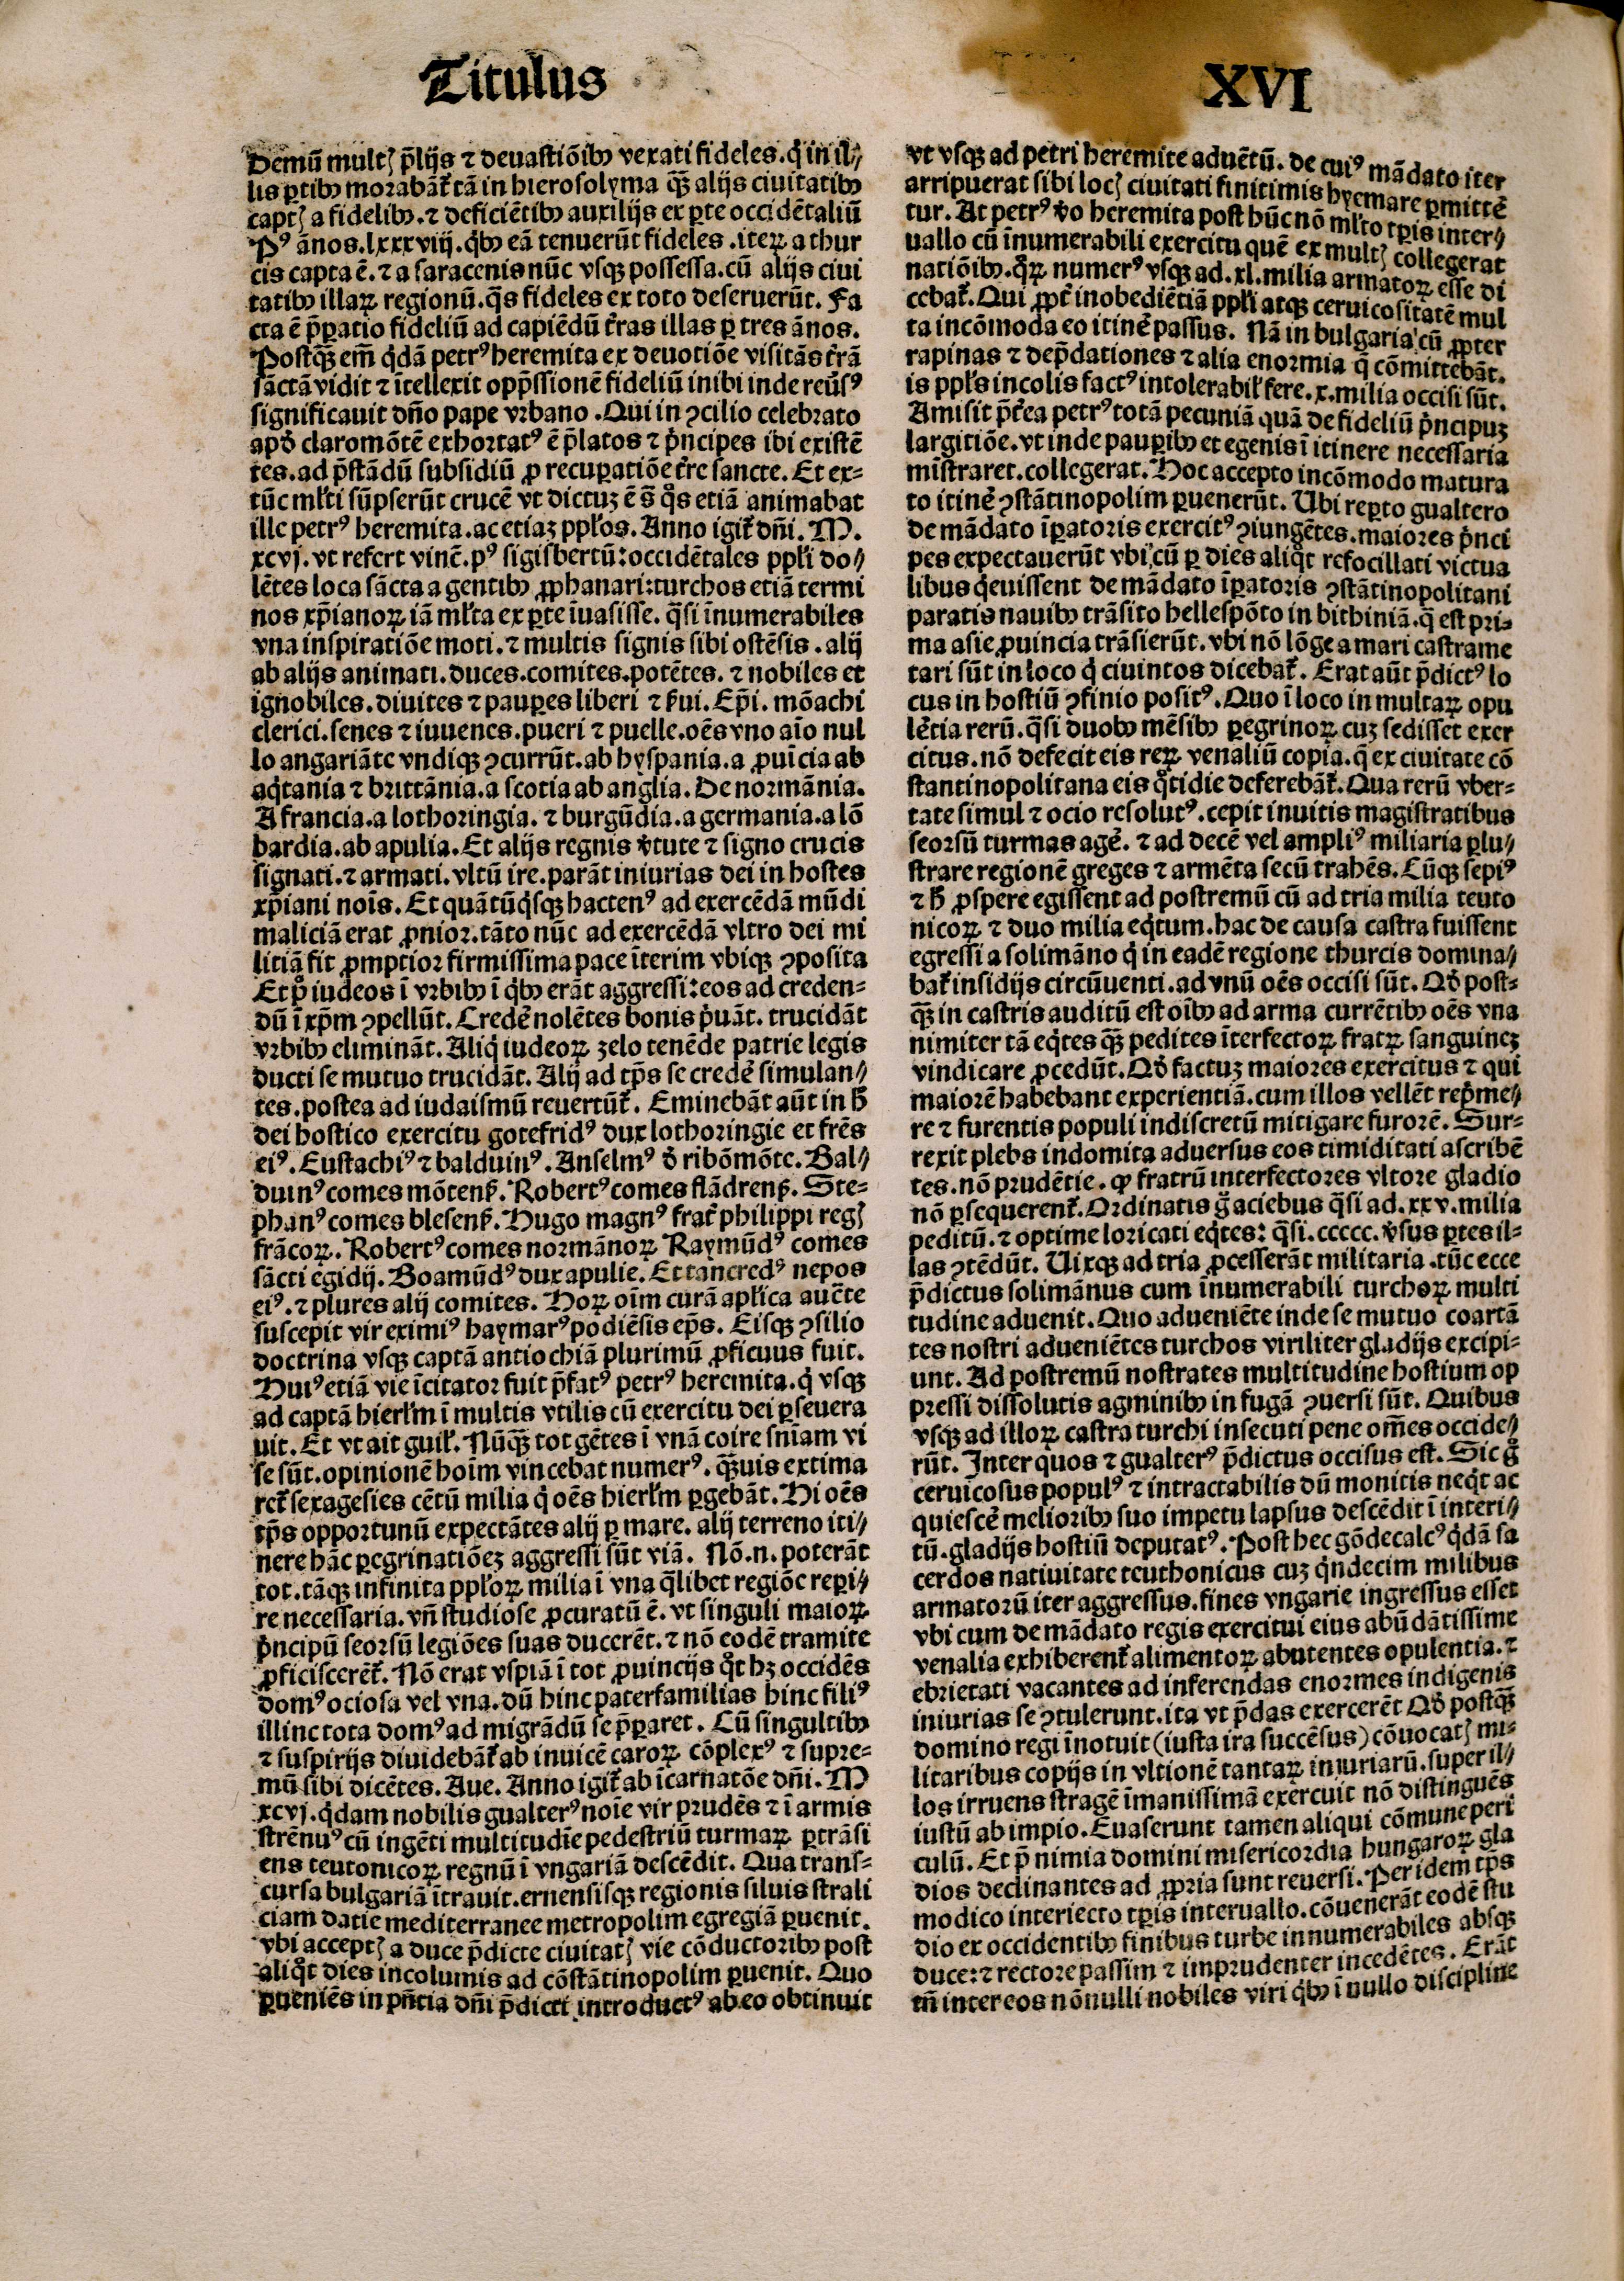 Titulus
XVI
Demū multꝭ p̄lijs ⁊ deuastiōibꝰ vexati fideles. q̇ in il⸗
lis ꝑtibꝰ morabāt᷑ tā in hierosolyma q̄ꝫ alijs ciuitatibꝰ
captꝭ a fidelibꝰ. ⁊ deficiētibꝰ auxilijs ex ꝑte occidētaliū
Pꝰ ānos. lxxxviij. q̇bꝰ eā tenuerūt fideles. iteꝝ a thur
cis capta ē. ⁊ a saracenis nūc vsqꝫ possessa. cū alijs ciui
tatibꝰ illaꝝ regionū. q̄s fideles ex toto deseruerūt. Fa
cta ē p̄ꝑatio fideliū ad capiēdū t̄ras illas ꝑ tres ānos.
Postqꝫ̄ em̄ q̇dā petrꝰ heremita ex deuotiōe visitās t̄rā
sāctā vidit ⁊ ītellexit opp̄ssionē fideliū inibi inde reūsꝰ
significauit dn̄o pape vrbano. Qui in ꝯcilio celebrato
apd̄ claromōtē exhortatꝰ ē p̄latos ⁊ ṗncipes ibi existē
tes. ad p̄stādū subsidiū ꝓ recuꝑatiōe t̄re sancte. Et ex⸗
tūc ml̄ti sūpserūt crucē vt dictuꝫ ē s̄ q̊s etiā animabat
ille petrꝰ heremita. ac etiaꝫ ppl̄os. Anno igit᷑ dn̄i. M.
xcvj. vt refert vinē. pꝰ sigisbertū: occidētales ppl̄i do⸗
lētes loca sācta a gentibꝰ ꝓphanari: turchos etiā termi
nos xp̄ianoꝝ iā ml̄ta ex ꝑte īuasisse. q̄si īnumerabiles
vna inspiratiōe moti. ⁊ multis signis sibi ostēsis. alij
ab alijs animati. duces. comites. potētes. ⁊ nobiles et
ignobiles. diuites ⁊ pauꝑes liberi ⁊ ẜui. Ep̄i. mōachi
clerici. senes ⁊ iuuenes. pueri ⁊ puelle. oēs vno aīo nul
lo angariāte vndiqꝫ ꝯcurrūt. ab hyspania. a ꝓuīcia ab
aq̇tania ⁊ brittānia. a scotia ab anglia. De normānia.
A francia. a lothoringia. ⁊ burgūdia. a germania. a lō
bardia. ab apulia. Et alijs regnis v̄tute ⁊ signo crucis
signati. ⁊ armati. vltū ire. parāt iniurias dei in hostes
xp̄iani nois̄. Et quātūq̇sqꝫ hactenꝰ ad exercēdā mūdi
maliciā erat ꝓnior. tāto nūc ad exercēdā vltro dei mi
litiā fit ꝓmptior firmissima pace īterim vbiqꝫ ꝯposita
Et pͦ iudeos ī vrbibꝰ ī q̇bꝰ erāt aggressi: eos ad creden⸗
dū ī xp̄m ꝯpellūt. Credē nolētes bonis ṗuāt. trucidāt
vrbibꝰ elimināt. Aliq̇ iudeoꝝ zelo tenēde patrie legis
ducti se mutuo trucidāt. Alij ad tp̄s se credē simulan⸗
tes. postea ad iudaismū reuertūt᷑. Eminebāt aūt in h̄
dei hostico exercitu gotefridꝰ dux lothoringie et frēs
eiꝰ. Eustachiꝰ ⁊ balduinꝰ. Anselmꝰ d̄ ribōmōte. Bal⸗
duinꝰ comes mōtenẜ. Robertꝰ comes flādrenẜ. Ste⸗
phanꝰ comes blesenẜ. Hugo magnꝰ frat᷑ philippi regꝭ
frācoꝝ. Robertꝰ comes normānoꝝ Raymūdꝰ comes
sācti egidij. Boamūdꝰ dux apulie. Et tancredꝰ nepos
eiꝰ. ⁊ plures alij comites. Hoꝝ oīm curā apl̄ica auc̄te
suscepit vir eximiꝰ haymarꝰ podiēsis ep̄s. Eisqꝫ ꝯsilio
doctrina vsqꝫ captā antiochiā plurimū ꝓficuus fuit.
Huiꝰ etiā vie īcitator fuit p̄fatꝰ petrꝰ heremita. q̇ vsqꝫ
ad captā hierl̄m ī multis vtilis cū exercitu dei ꝑseuera
uit. Et vt ait guil̄. Nūqꝫ̄ tot gētes ī vnā coire sn̄iam vi
se sūt. opinionē hoīm vincebat numerꝰ. qꝫ̄uis extima
ret᷑ sexagesies cētū milia q̇ oēs hierl̄m ꝑgebāt. Hi oēs
tp̄s opportunū expectātes alij ꝑ mare. alij terreno iti⸗
nere hāc ꝑegrinatiōeꝫ aggressi sūt viā. Nō. n. poterāt
tot. tāqꝫ infinita ppl̄oꝝ milia ī vna q̄libet regiōe reꝑi⸗
re necessaria. vn̄ studiose ꝓcuratū ē. vt singuli maioꝝ
ṗncipū seorsū legiōes suas ducerēt. ⁊ nō eodē tramite
ꝓficiscerēt᷑. Nō erat vspiā ī tot ꝓuincijs q̊t hꝫ occidēs
domꝰ ociosa vel vna. dū hinc paterfamilias hinc filiꝰ
illinc tota domꝰ ad migrādū se p̄ꝑaret. Cū singultibꝰ
⁊ suspirijs diuidebāt᷑ ab inuicē caroꝝ cōplexꝰ ⁊ supre⸗
mū sibi dicētes. Aue. Anno igit᷑ ab īcarnatōe dn̄i. M
xcvj. q̇dam nobilis gualterꝰ noīe vir prudēs ⁊ ī armis
strēnuꝰ cū ingēti multitudīe pedestriū turmaꝝ ꝑtrāsi
ens teutonicoꝝ regnū ī vngariā descēdit. Qua trans⸗
cursa bulgariā ītrauit. ernensisqꝫ regionis siluis strali
ciam datie mediterranee metropolim egregiā ꝑuenit.
vbi acceptꝭ a duce p̄dicte ciuitatꝭ vie cōductoribꝰ post
aliq̊t dies incolumis ad cōstātinopolim ꝑuenit. Quo
ꝑueniēs in pn̄tia dn̄i p̄dicti introductꝰ ab eo obtinuit
vt vsqꝫ ad petri heremite aduētū. de cuiꝰ mādato iter
arripuerat sibi locꝭ ciuitati finitimis hyemare ꝑmittē
tur. At petrꝰ v̄o heremita post hūc nō ml̄to tꝑis inter⸗
uallo cū īnumerabili exercitu quē ex multꝭ collegerat
natiōibꝰ. q̊ꝝ numerꝰ vsqꝫ ad. xl. milia armatoꝝ esse di
cebat᷑. Qui ꝓpt᷑ inobediētiā ppl̄i atqꝫ ceruicositatē mul
ta incōmoda eo itinē passus. Nā in bulgaria cū ꝓpter
rapinas ⁊ dep̄dationes ⁊ alia enormia q̄ cōmittebāt.
is ppl̄s incolis factꝰ intolerabil̄ fere. x. milia occisi sūt.
Amisit p̄t᷑ea petrꝰ totā pecuniā quā de fideliū ṗncipuꝫ
largitiōe. vt inde pauꝑibꝰ et egenis ī itinere necessaria
mīstraret. collegerat. Hoc accepto incōmodo matura
to itinē ꝯstātinopolim ꝑuenerūt. Ubi reꝑto gualtero
de mādato īꝑatoris exercitꝰ ꝯiungētes. maiores ṗnci
pes expectauerūt vbi cū ꝑ dies aliq̊t refocillati victua
libus q̇euissent de mādato īꝑatoris ꝯstātinopolitani
paratis nauibꝰ trāsito hellespōto in bithiniā. q̄ est pri⸗
ma asie ꝓuincia trāsierūt. vbi nō lōge a mari castrame
tari sūt in loco q̇ ciuintos dicebat᷑. Erat aūt p̄dictꝰ lo
cus in hostiū ꝯfinio positꝰ. Quo ī loco in multaꝝ opu
lētia rerū. q̄si duobꝰ mēsibꝰ ꝑegrinoꝝ cuꝫ sedisset exer
citus. nō defecit eis reꝝ venaliū copia. q̄ ex ciuitate cō
stantinopolitana eis q̊tidie deferebāt᷑. Qua rerū vber⸗
tate simul ⁊ ocio resolutꝰ. cepit inuitis magistratibus
seorsū turmas agē. ⁊ ad decē vel ampliꝰ miliaria ꝑlu⸗
strare regionē greges ⁊ armēta secū trahēs. Cūqꝫ sepiꝰ
⁊ h̄ ꝓspere egissent ad postremū cū ad tria milia teuto
nicoꝝ ⁊ duo milia eq̇tum. hac de causa castra fuissent
egressi a solimāno q̇ in eadē regione thurcis domina⸗
bat᷑ insidijs circūuenti. ad vnū oēs occisi sūt. Qd̄ post⸗
qꝫ̄ in castris auditū est oībꝰ ad arma currētibꝰ oēs vna
nimiter tā eq̇tes qꝫ̄ pedites īterfectoꝝ fratꝝ sanguineꝫ
vindicare ꝓcedūt. Qd̄ factuꝫ maiores exercitus ⁊ qui
maiorē habebant experientiā. cum illos vellēt reṗme⸗
re ⁊ furentis populi indiscretū mitigare furorē. Sur⸗
rexit plebs indomita aduersus eos timiditati ascribē
tes. nō prudētie. ꝙ fratrū interfectores vltore gladio
nō ꝑsequerent᷑. Ordinatis g̊ aciebus q̄si ad. xxv. milia
peditū. ⁊ optime loricati eq̇tes: q̄si. ccccc. v̄sus ꝑtes il⸗
las ꝯtēdūt. Uixqꝫ ad tria ꝓcesserāt militaria. tūc ecce
p̄dictus solimānus cum īnumerabili turchoꝝ multi
tudine aduenit. Quo adueniēte inde se mutuo coartā
tes nostri adueniētes turchos viriliter gladijs excipi⸗
unt. Ad postremū nostrates multitudine hostium op
pressi dissolutis agminibꝰ in fugā ꝯuersi sūt. Quibus
vsqꝫ ad illoꝝ castra turchi insecuti pene om̄es occide⸗
rūt. Inter quos ⁊ gualterꝰ p̄dictus occisus est. Sic g̊
ceruicosus populꝰ ⁊ intractabilis dū monitis neq̇t ac
quiescē melioribꝰ suo impetu lapsus descēdit ī interi⸗
tū. gladijs hostiū deputatꝰ. Post hec gōdecalcꝰ q̇dā sa
cerdos natiuitate teuthonicus cuꝫ q̇ndecim milibus
armatorū iter aggressus. fines vngarie ingressus esset
vbi cum de mādato regis exercitui eius abūdātissime
venalia exhiberent᷑ alimentoꝝ abutentes opulentia. ⁊
ebrietati vacantes ad inferendas enormes indigenis
iniurias se ꝯtulerunt. ita vt p̄das exercerēt Qd̄ postqꝫ̄
domino regi īnotuit (iusta ira succēsus) cōuocatꝭ mi⸗
litaribus copijs in vltionē tantaꝝ iniuriarū. super il⸗
los irruens stragē īmanissimā exercuit nō distinguēs
iustū ab impio. Euaserunt tamen aliqui cōmune peri
culū. Et p̄ nimia domini misericordia hungaroꝝ gla
dios declinantes ad ꝓpria sunt reuersi. Per idem tp̄s
modico interiecto tꝑis interuallo. cōuenerāt eodē stu
dio ex occidentibꝰ finibus turbe innumerabiles absqꝫ
duce: ⁊ rectore passim ⁊ imprudenter incedētes. Erāt
tn̄ inter eos nōnulli nobiles viri q̇bꝰ ī nullo discipline